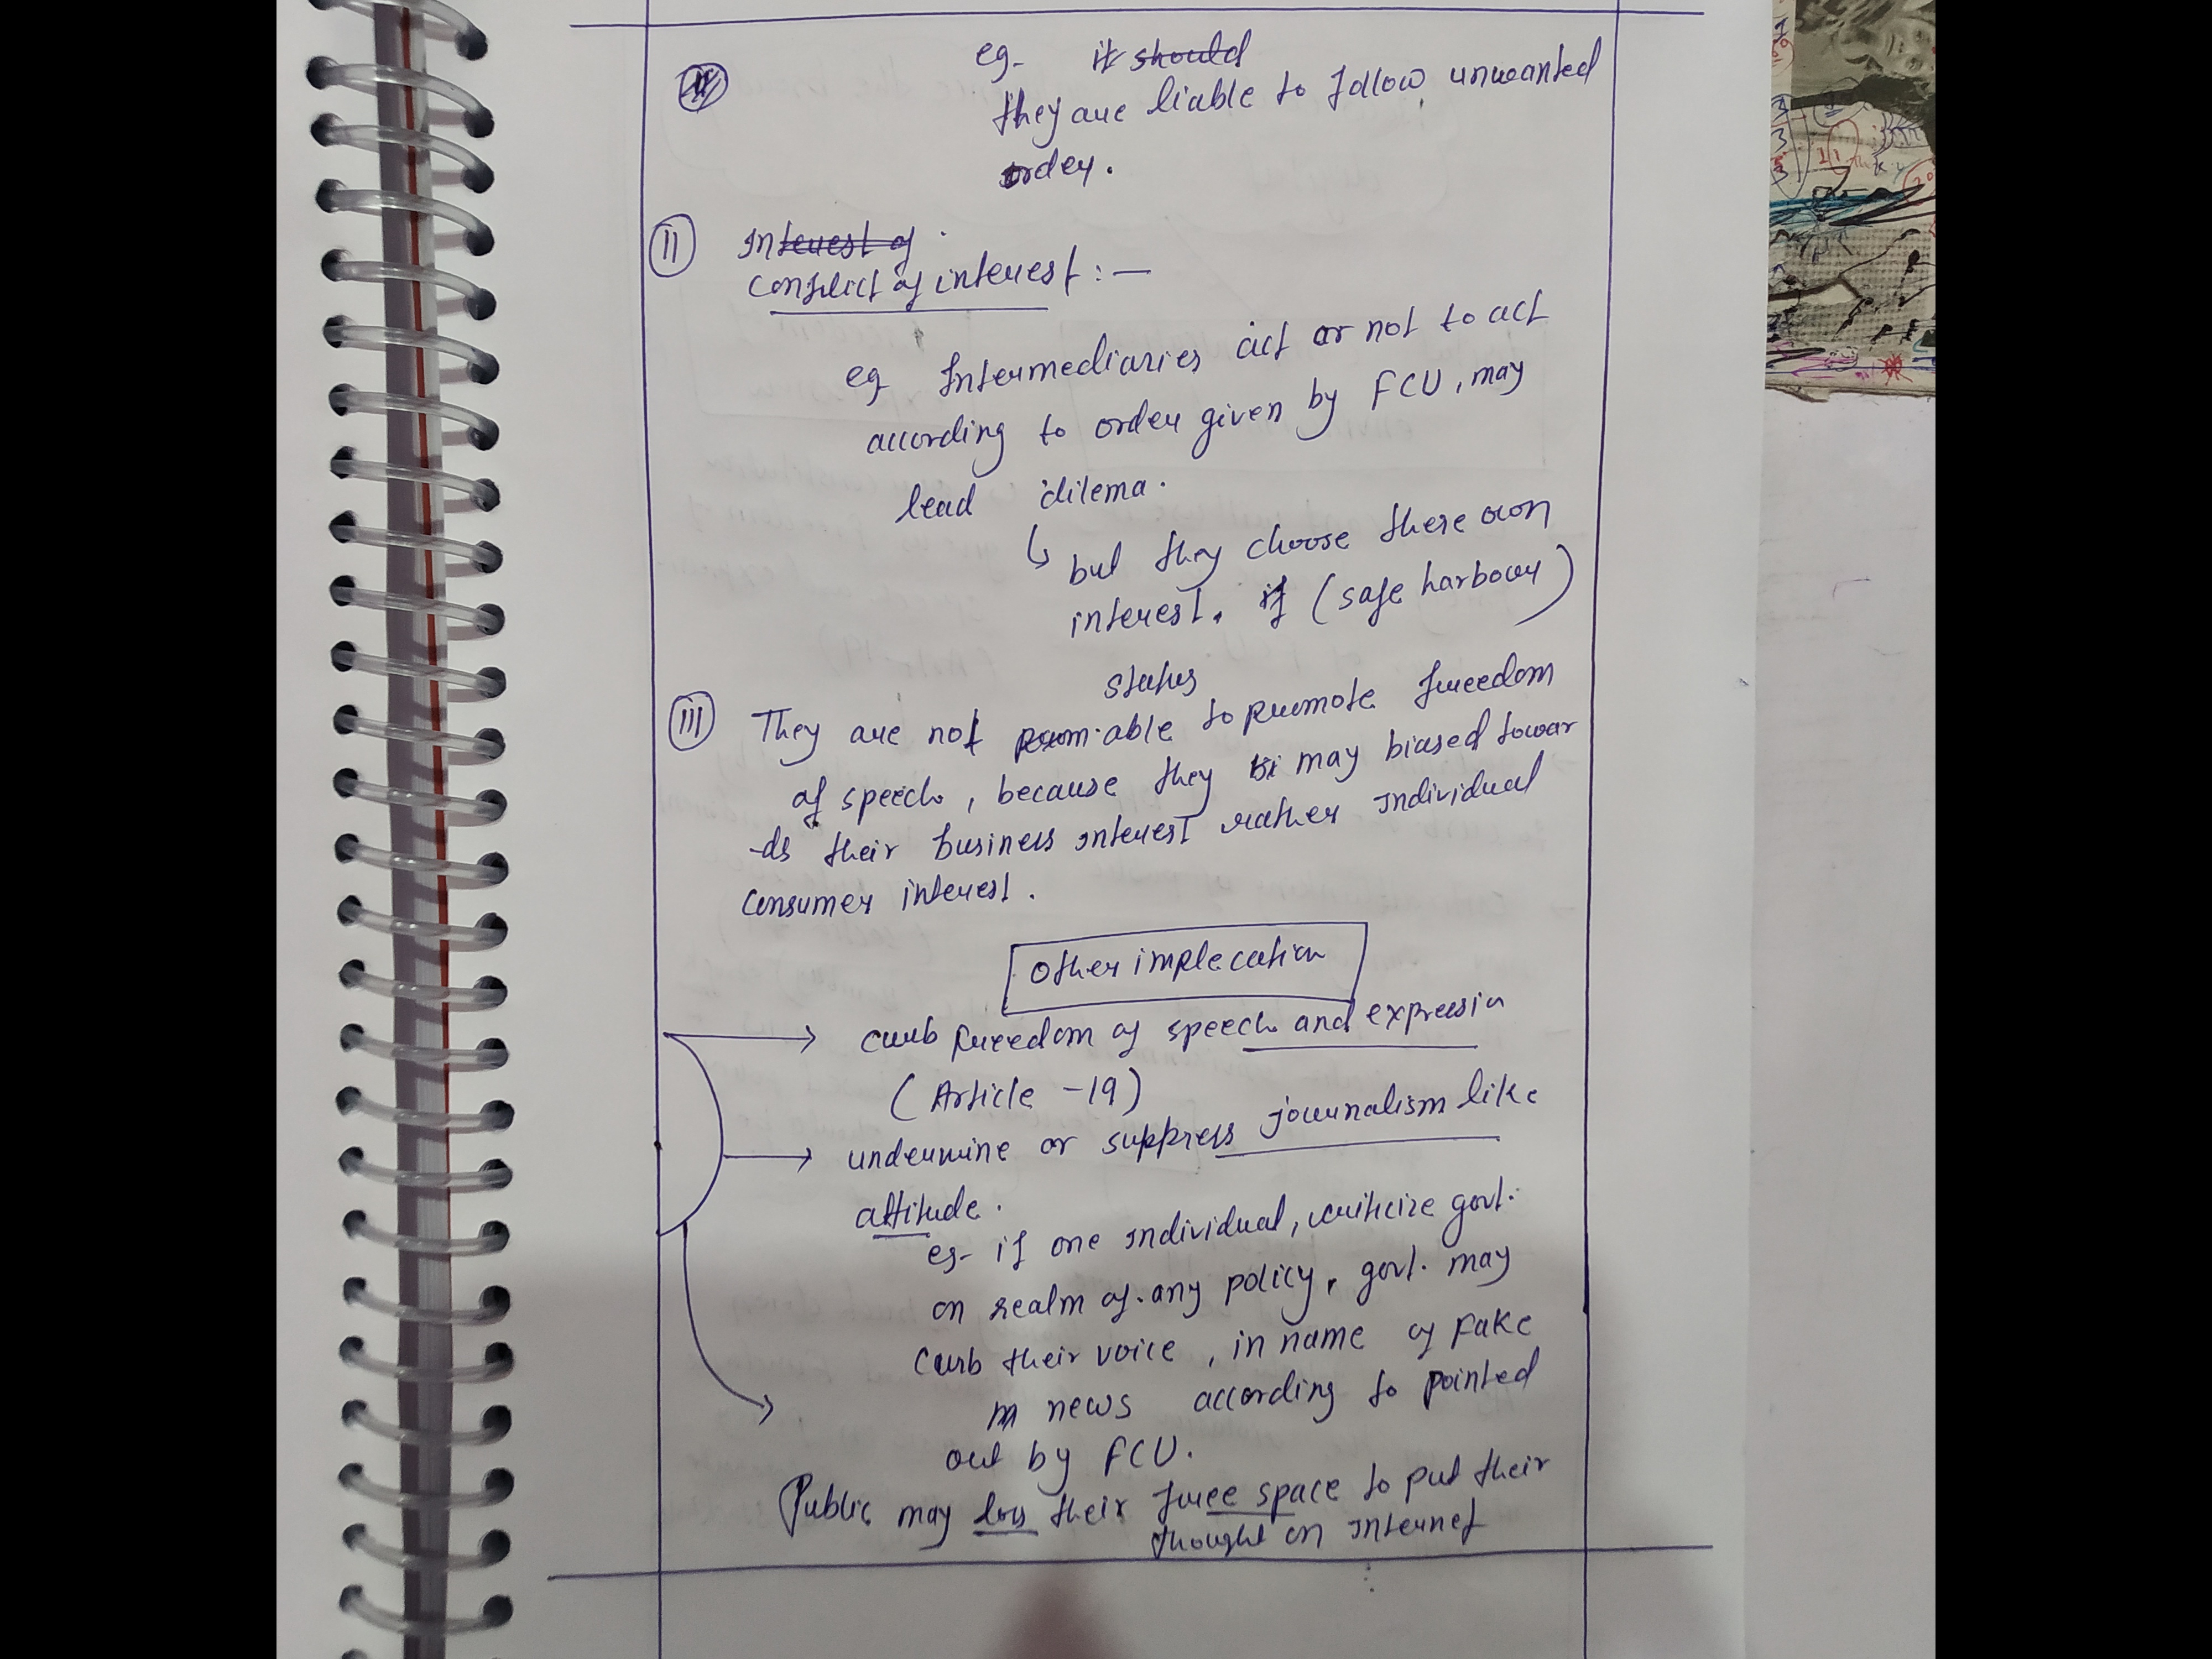 eg- it should
they are liable to follow unwanted
order.
II Interest of
conflict of interest : —
eg Intermediaries act or not to act
according to order given by FCU, may
lead dilema.
but they choose there own
interest. if (safe harbour)
status
III They are not prom.able to promote freedom
of speech, because they bi may biased towar
-ds their business interest rather individual
consumer interest.
other implecation
curb freedom of speech and expression
(Article -19)
undermine or suppress journalism like
attitude.
eg- if one individual, criticize govt.
on realm of any policy, govt. may
curb their voice, in name of fake
news according to pointed
out by FCU.
Public may loss their free space to put their
thought on internet